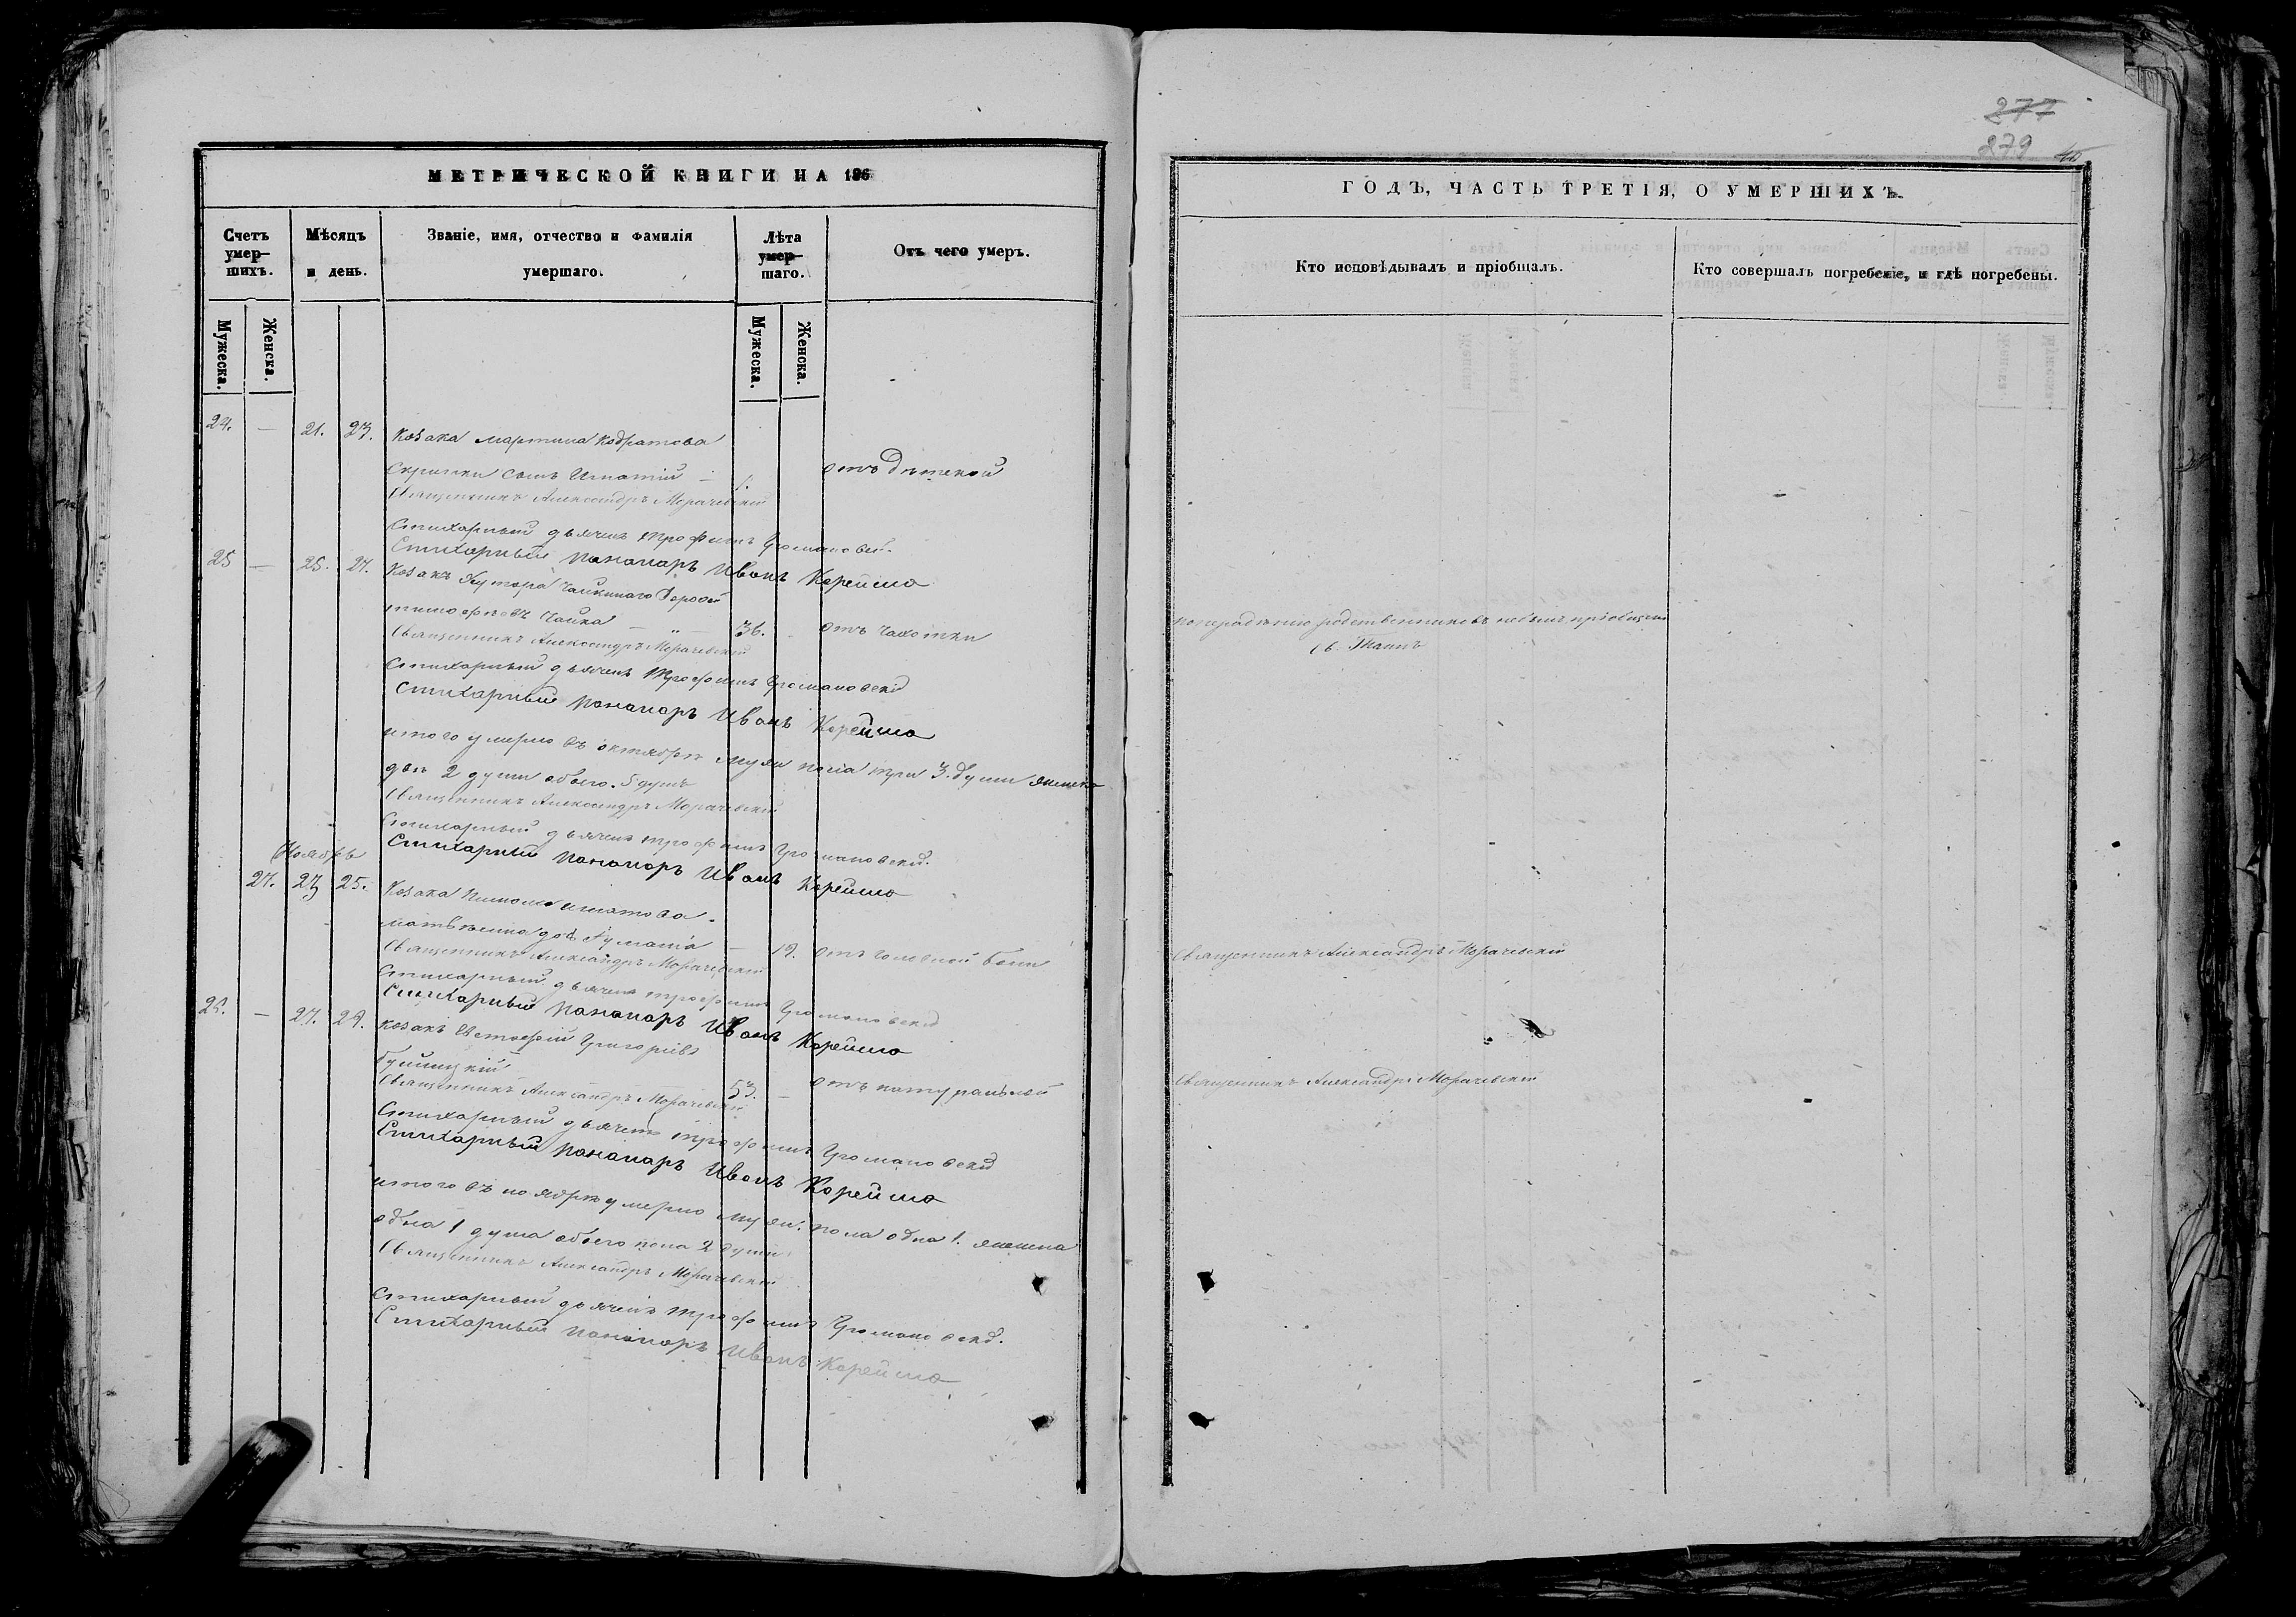 277
279
МЕТРИЧЕСКОЙ КНИГИ НА 186
ГОДЪ, ЧАСТЬ ТРЕТІЯ, О УМЕРШИХЪ.
Счетъ умер-шихъ.
Мѣсяцъ и день.
Званіе, имя, отчество и фамилія умершаго.
Лѣта умер-шаго.
Отъ чего умеръ.
Кто исповѣдывалъ и пріобщалъ.
Кто совершалъ погребеніе, и гдѣ погребены.
Мужеска.
Женска.
Мужеска.
Женска.
24. — 21. 23. Козака Мартина Кодратова
сынъ Игнатій — 1. отъ дѣтской
Священникъ Александръ Морачевскій
Стихарный дьячекъ Трофимъ Громановскі.
Стихарный панамаръ Иванъ Корейша
25 — 25. 27. Козакъ Хутора Чайкинаго
Тимофѣевъ Чайка — „ — 36. отъ чахотки
родственниковъ небылъ пріобщенъ
Св. Таинъ
Священникъ Александръ Морачевскій
Стихарный дьячекъ Трофимъ Громановскій
Стихарный панамаръ Иванъ Корейша
итого умерло въ октябрѣ муж. пола три 3. души женска
двѣ 2 души обоего. 5 душъ
Священникъ Александръ Морачевскій
Стихарный дьячекъ Трофимъ Громановскій.
Стихарный панамаръ Иванъ Корейша
Ноябрь
27. 23 25. Козака Игнатова
дочь — 12. отъ головной боли
Священникъ Александръ Морачевскій
Священникъ Александръ Морачевскій
Стихарный дьячекъ Трофимъ Громановскій
Стихарный панамаръ Иванъ Корейша
— 27. 29. Козакъ Евстафій Григоріевъ
53. — отъ натуральной
Священникъ Александръ Морачевскій
Священникъ Александръ Морачевскій
Стихарный дьячекъ Трофимъ Громановскій
Стихарный панамаръ Иванъ Корейша
итого въ ноябрѣ умерло муж. пола одна 1. женска
одна 1 душа обоего пола 2 души
Священникъ Александръ Морачевскій
Стихарный дьячекъ Трофимъ Громановскій.
Стихарный панамаръ Иванъ Корейша